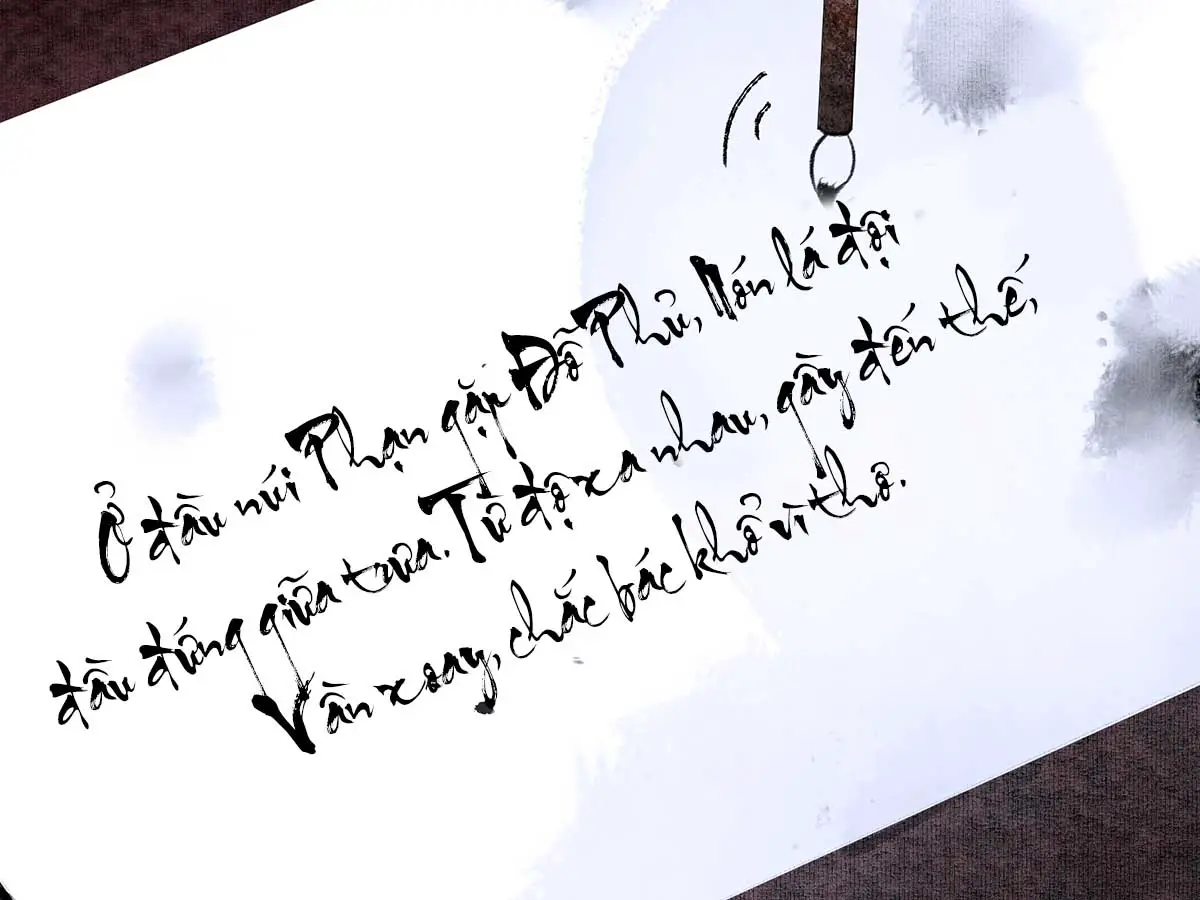 Ở đầu núi Phạn gặp Đỗ Phủ, Nón lá đội
đầu đứng giữa trưa. Từ độ xa nhau, gầy đến thế,
Vần xoay, chắc bác khổ vì thơ.